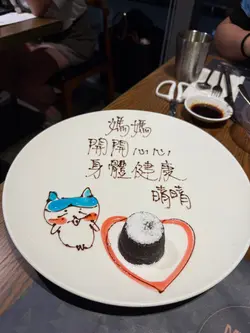 媽媽
開開心心
身體健康
晴晴